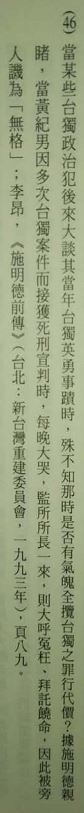 (46) 當某些台獨政治犯後來大談其當年台獨英勇事蹟時，殊不知那時是否有氣魄全攬台獨之罪行代價？據施明德親
睹，當黃紀男因多次台獨案件而接獲死刑宣判時，每晚大哭，監所所長一來，則大呼冤枉、拜託饒命，因此被旁
人譏為「無格」；李昂，《施明德前傳》（台北：新台灣重建委員會，一九九三年），頁八九。